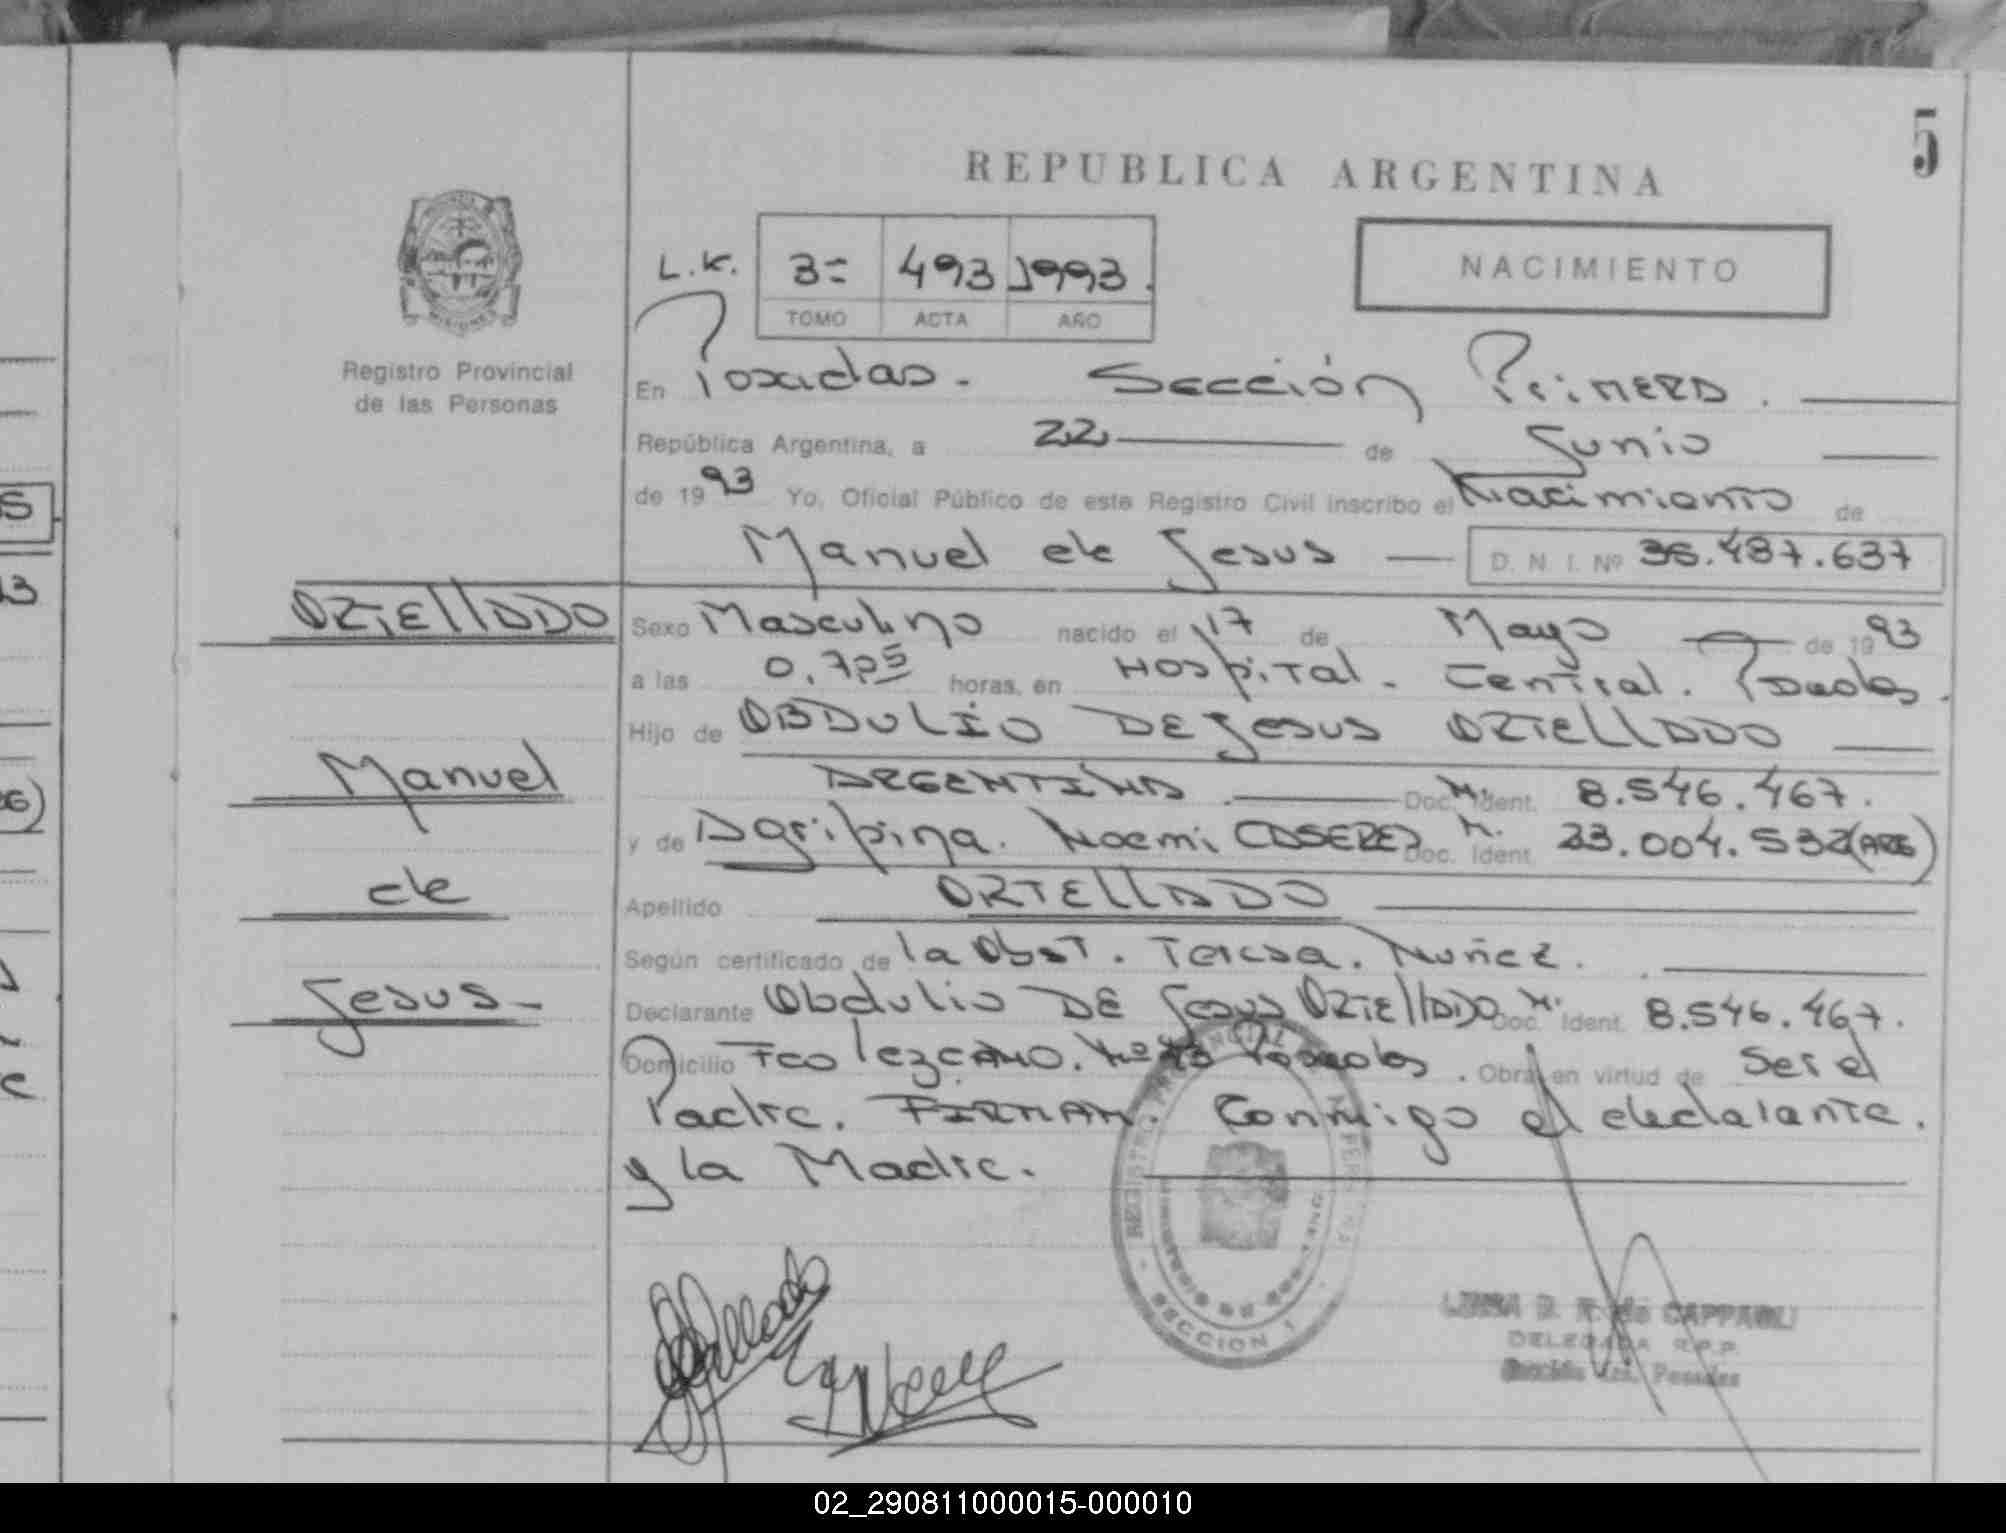 5
REPUBLICA ARGENTINA
NACIMIENTO
L.K. 3= 493 1993.
TOMO ACTA AÑO
MISIONES
Registro Provincial
de las Personas
En Posadas. Sección Primera.
República Argentina, a 22 de Junio
de 1993 Yo, Oficial Público de este Registro Civil inscribo el Nacimiento de
Manuel de Jesus D. N. I. Nº 36.487.637
ORTELLADO Sexo Masculino nacido el 17 de Mayo de 1993
a las horas, en Hospital. Central. Posadas.
Hijo de OBDULIO DE Jesus ORTELLADO
Manuel ARGENTINA. Doc. Ident. M. 8.546.467.
y de Agripina. Noemi Doc. Ident. M. 23.004.532 (ARG)
de Apellido ORTELLADO
Según certificado de la Obst. Teresa. Nuñez.
Jesus- Declarante Obdulio DE Jesus ORTELLADO Doc. Ident. M. 8.546.467.
Domicilio Fco lezcano. Posadas. Obra en virtud de Ser el
Padre. FIRMAN. Conmigo el declarante.
y la Madre.
REGISTRO PROVINCIAL DE
SECCION 1
de CAPPAGLI
DELEGADA R.P.P.
Posadas
02_290811000015-000010